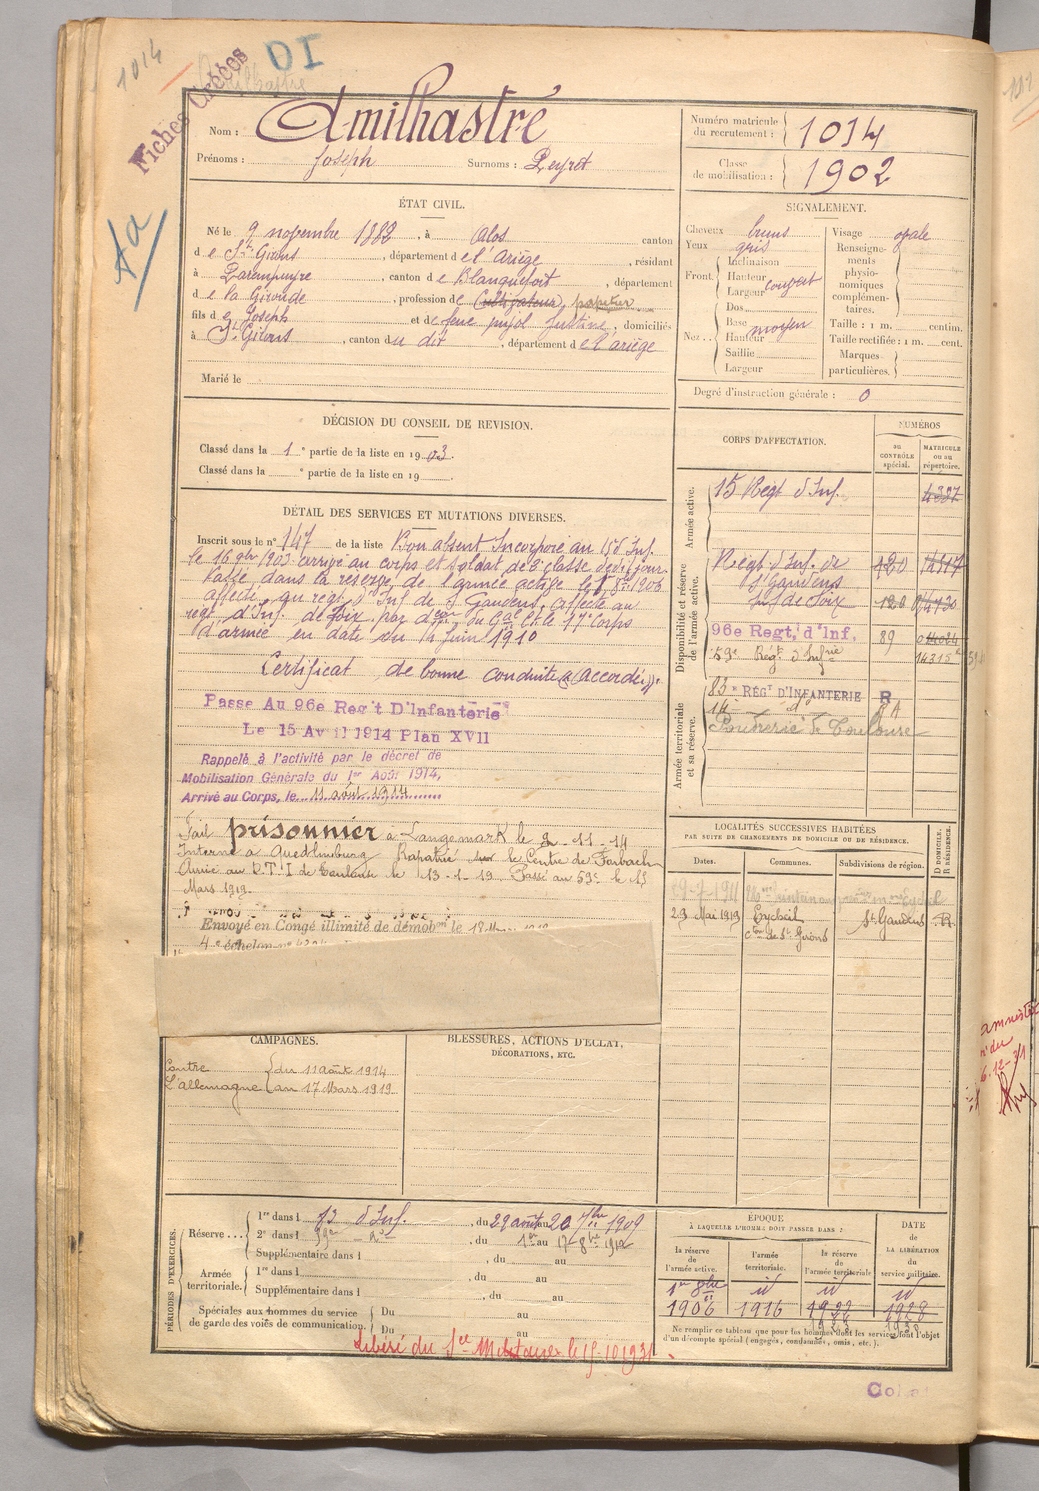 1014
DI
Fiches Créées
Nom : Amilhastre
Prénoms : Joseph Surnoms : Peyret
Numéro matricule du recrutement : 1014
Classe de mobilisation : 1902
ÉTAT CIVIL.
Né le 9 novembre 1882, à Alos canton
de St Girons, département de l'Ariège, résidant
à Parempuyre, canton de Blanquefort, département
de la Gironde, profession de Cultivateur, papetier
fils de Joseph et de feue pujol Justine, domiciliés
à St Girons, canton du dit, département de l'ariège
Marié le
SIGNALEMENT.
Cheveux bruns
Yeux gris
Front. Inclinaison
Hauteur
Largeur couvert
Nez. Dos
Base moyen
Hauteur
Saillie
Largeur
Visage ovale
Renseignements physionomiques complémentaires.
Taille : 1 m. centim.
Taille rectifiée : 1 m. cent.
Marques particulières.
Degré d'instruction générale : 0
DÉCISION DU CONSEIL DE REVISION.
Classé dans la 1e partie de la liste en 1903.
Classé dans la e partie de la liste en 19 .
DÉTAIL DES SERVICES ET MUTATIONS DIVERSES.
Inscrit sous le n° 147 de la liste Bon absent Incorporé au 15e d'Inf.
le 16 9bre 1903 arrivé au corps et soldat de 2e classe dedit jour.
Passé dans la réserve de l'armée active le 1er 8bre 1906
affecté au regt d'Inf de St Gaudens, affecté au
regt d'Inf. de Foix par don du Gal Ct le 17e Corps
d'armée en date du 14 Juin 1910
Certificat de bonne conduite (accordé).
Passe Au 96e Reg't D'Infanterie
Le 15 Avril 1914 Plan XVII
Rappelé à l'activité par le décret de
Mobilisation Générale du 1er Août 1914,
Arrivé au Corps, le 11 août 1914
Fait prisonnier à Langemark le 2-11-14
Interné à Quedlinburg Rapatrié sur le Centre de
Arrivé au D.T.I de Toulouse le 13-1-19 Passé au 59e le 15
Mars 1919.
Envoyé en Congé illimité de démobon le
4e échelon n°
CORPS D'AFFECTATION.
NUMÉROS
au contrôle spécial.
matricule ou au répertoire.
Armée active.
15 Regt d'Inf. 4337
Disponibilité et réserve de l'armée active.
Regt d'Inf. de St Gaudens 120
Inf de Foix 120
96e Regt, d'Inf, 89
59e Régt d'Infrie 14315
Armée territoriale et sa réserve.
83e REGt D'INFANTERIE R
14 do
Poudrerie de Toulouse
LOCALITÉS SUCCESSIVES HABITÉES
PAR SUITE DE CHANGEMENTS DE DOMICILE OU DE RÉSIDENCE.
Dates. Communes. Subdivisions de région. D DOMICILE. R RÉSIDENCE.
23 Mai 1919 Eycheil St Gaudens R
con de St Girons
CAMPAGNES.
Contre L'allemagne du 11 août 1914
au 17 Mars 1919
BLESSURES, ACTIONS D'ÉCLAT,
DÉCORATIONS, ETC.
PÉRIODES D'EXERCICES.
Réserve
1re dans l d'Inf., du 29 août au 20 7bre 1909
2e dans l 59e do, du 1er au 17 8bre 1912
Supplémentaire dans l , du au
Armée territoriale.
1re dans l , du au
Supplémentaire dans l , du au
Spéciales aux hommes du service de garde des voies de communication.
Du au
Du au
Libéré du Sce Militaire le 15-10 1931
ÉPOQUE
À LAQUELLE L'HOMME DOIT PASSER DANS :
la réserve de l'armée active. l'armée territoriale. la réserve de l'armée territoriale
DATE DE LA LIBÉRATION du service militaire.
1er 8bre 1906 id 1916 id 1922 id 1928
Ne remplir ce tableau que pour les hommes dont les services font l'objet
d'un décompte spécial (engagés, condamnés, omis, etc.).